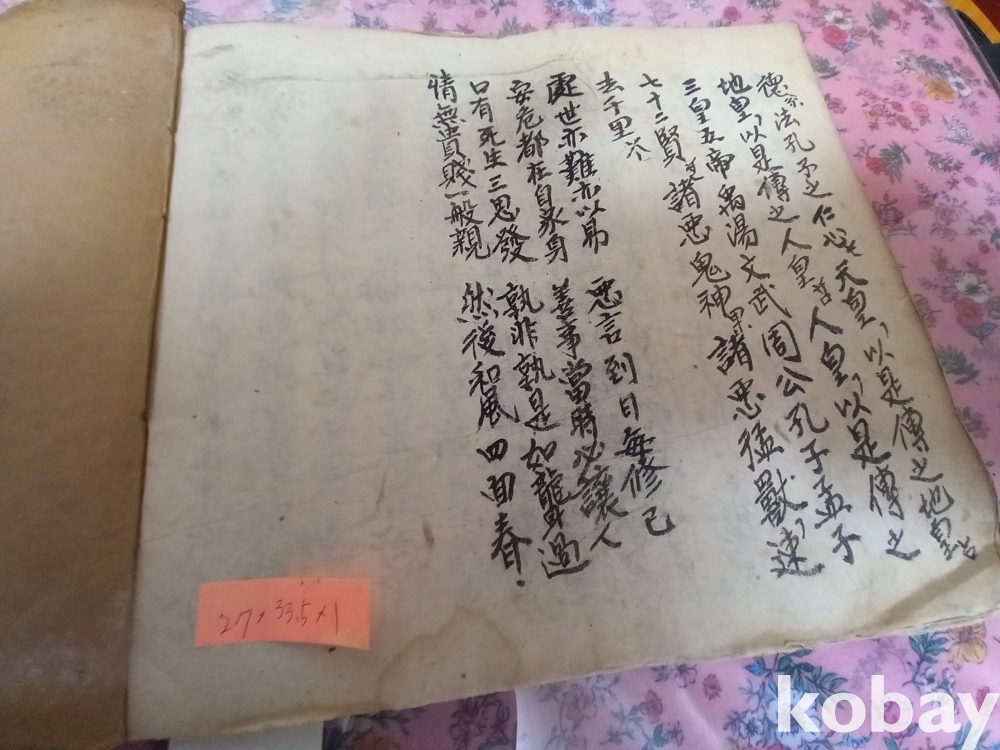 德法孔子之仁心天皇,以是傳之地皇
地皇,以是傳之人皇人皇,以是傳之
三皇五帝禹湯文武周公孔子孟子
七十二賢諸惡鬼神諸惡猛獸,速
去千里
處世亦難亦以易 惡言到日每修己
安危都在自家身 善事當時必讓人
口有死生三思發 孰非孰是如聾過
情無貴賤一般親 然後和展四面春.
27×33.5×1
kobay